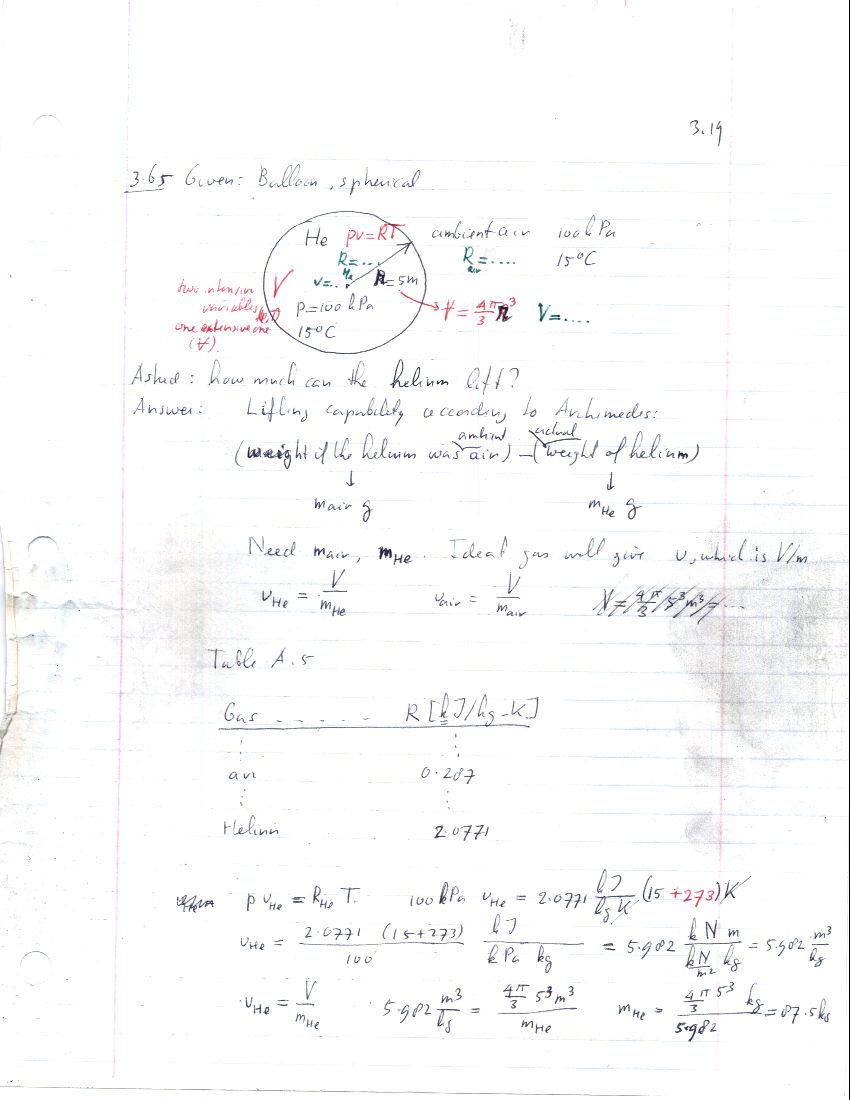 3.19
3.65 Given: Balloon, spherical
He pv=RT ambient air 100 kPa
R He = .... R air = .... 15°C
v=.. R=5m
two intensive variables
one extensive one (V).
V
p=100 kPa → V = 4π/3 R³ V=....
15°C
Asked: how much can the helium lift?
Answer: Lifting capability according to Archimedes:
ambient actual
(weight if the helium was air) – (weight of helium)
↓ ↓
m air g m He g
Need m air, m He. Ideal gas will give v, which is V/m
v He = V/m He v air = V/m air V = 4π/3 5³ m³ = ...
Table A.5
Gas - - - - - R [kJ/kg-K]
air 0.287
Helium 2.0771
p v He = R He T. 100 kPa v He = 2.0771 kJ/kg K (15 +273) K
v He = 2.0771 (15+273)/100 kJ/kPa kg = 5.982 kN m/(kN/m² kg) = 5.982 m³/kg
v He = V/m He 5.982 m³/kg = (4π/3 5³ m³)/m He m He = (4π/3 5³)/5.982 kg = 87.5 kg